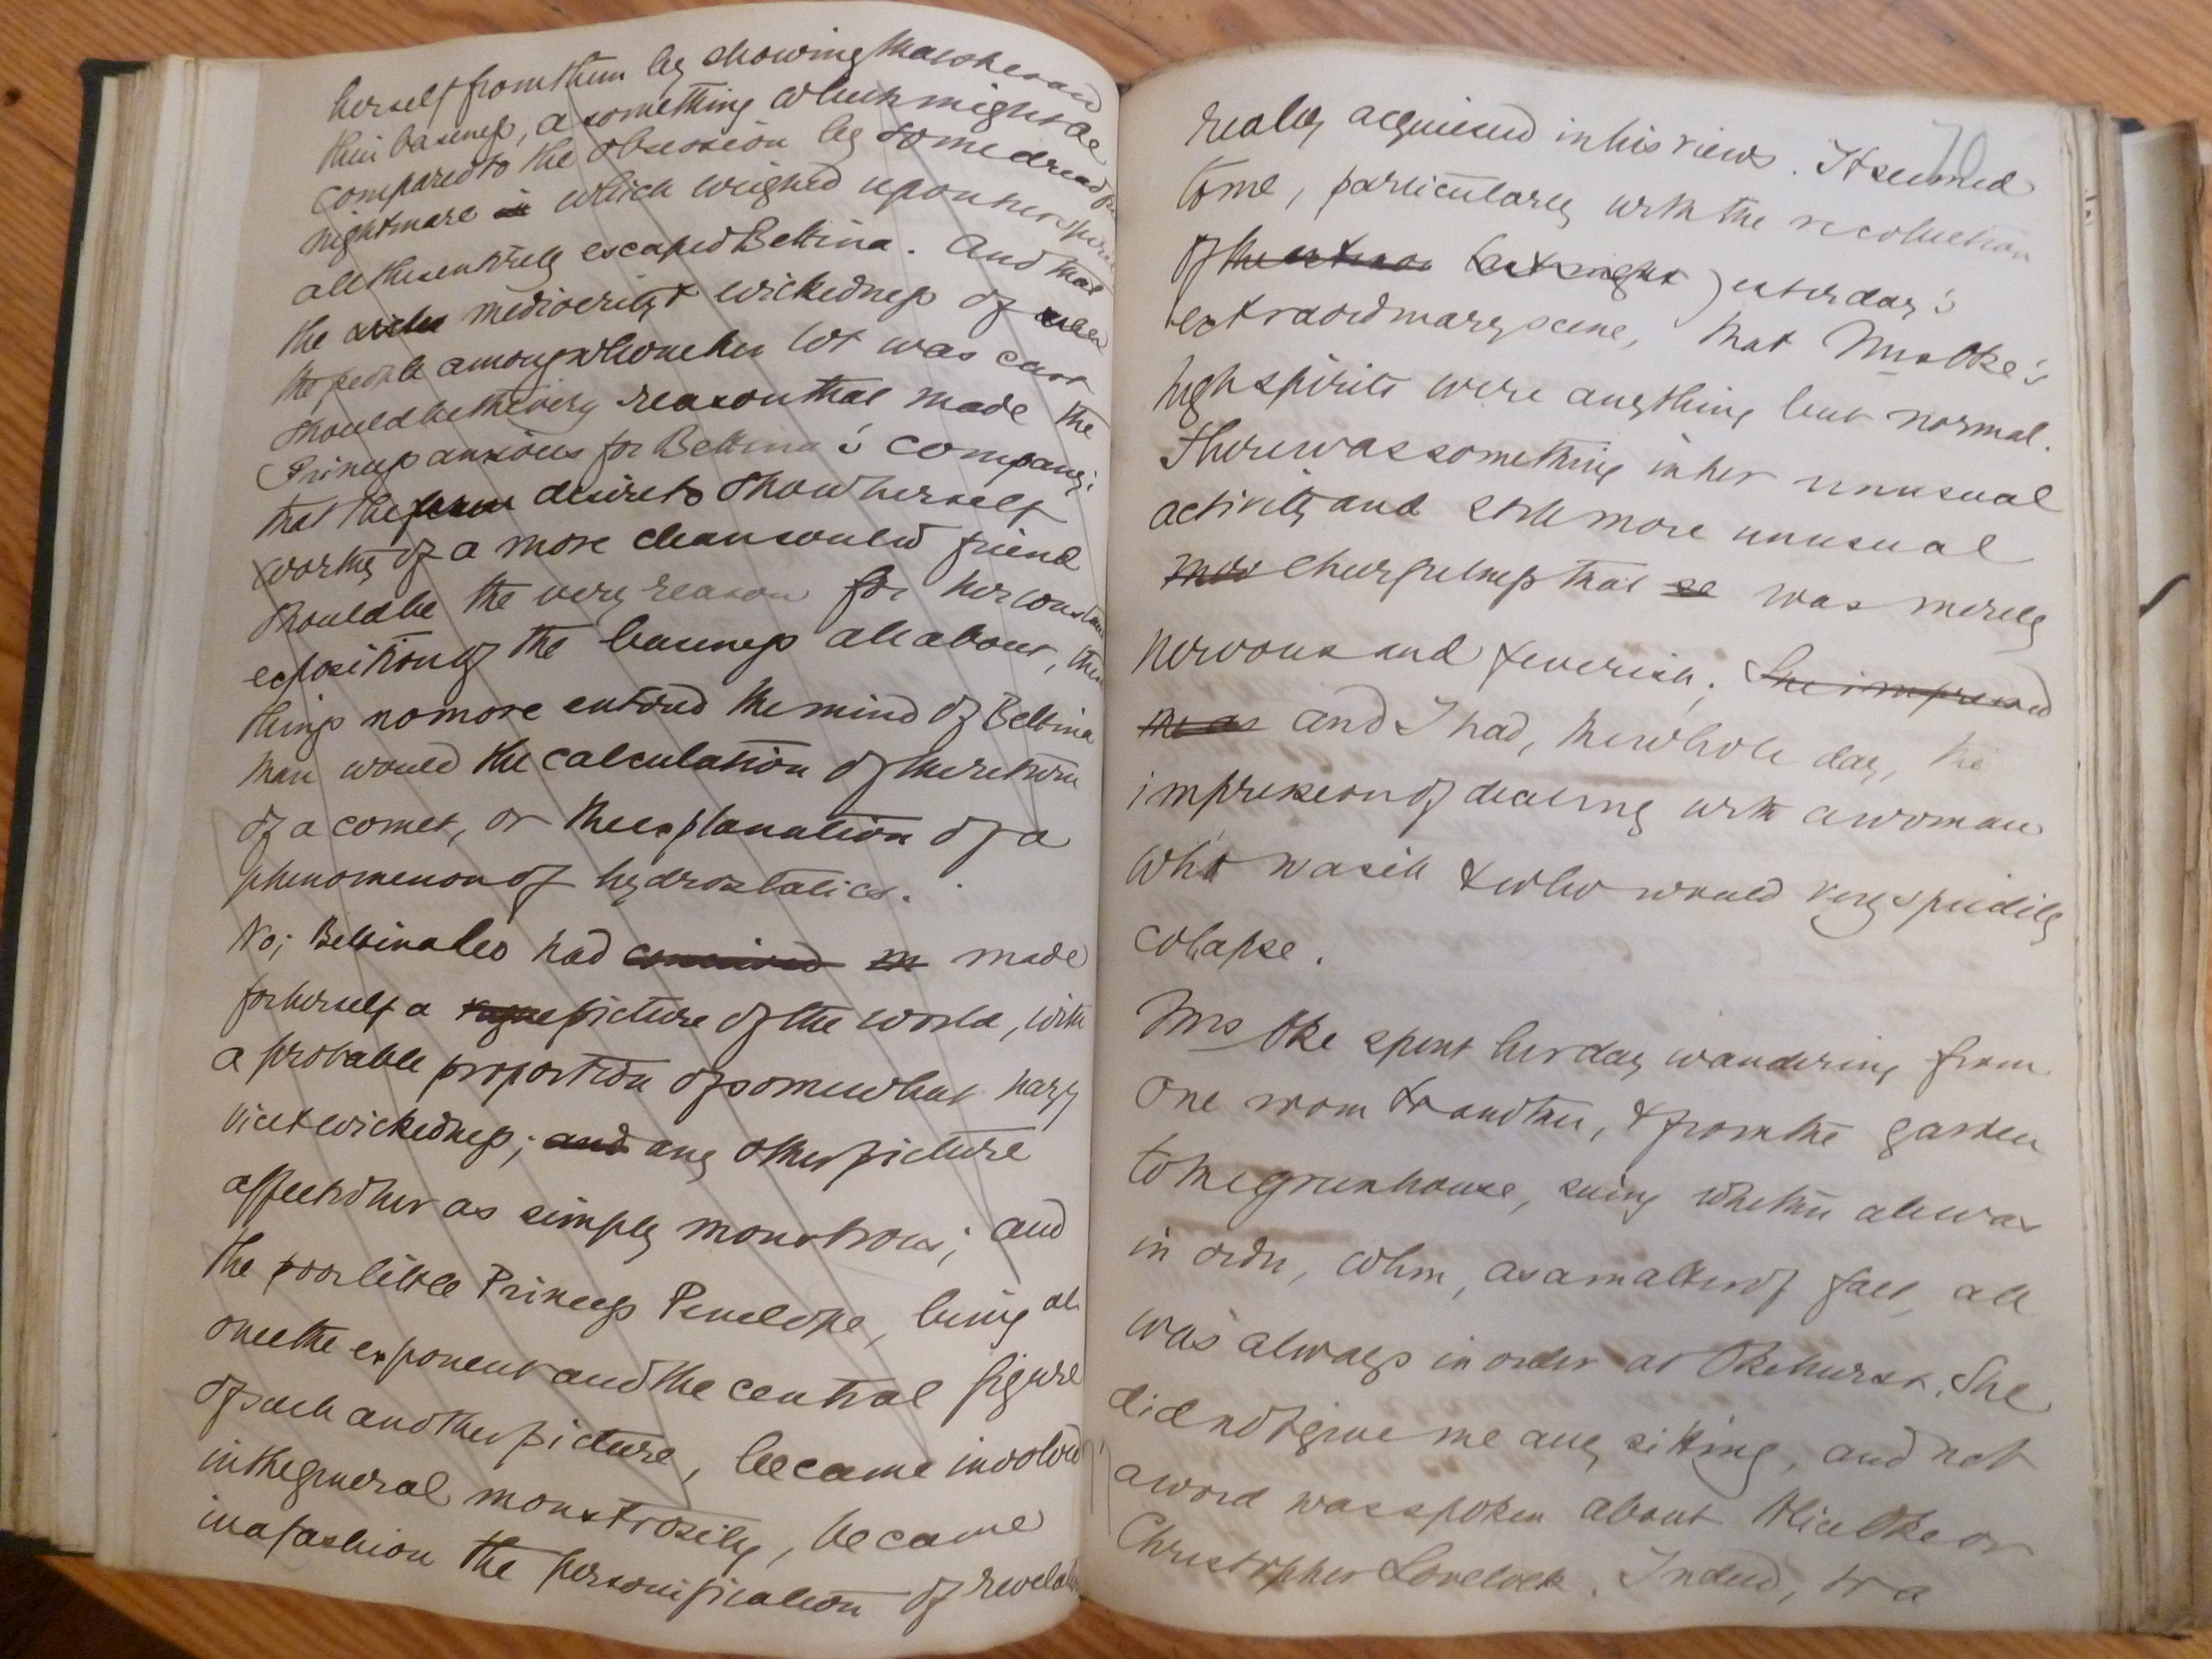 herself from them by showing that she saw
their baseness, a something which might be
compared to the obsession by some dreadful
nightmare in which weighed upon her spirit
all these entirely escaped Bettina. And that
the mediocrity & wickedness of
the people among whom her lot was cast
should be the very reason that made the
Princess anxious for Bettina's company;
that the desire to show herself
worthy of a more clean souled friend
should be the very reason for her constant
exposition of the baseness all about, these
things no more entered the mind of Bettina
than would the calculation of the return
of a comet, or the explanation of a
phenomenon of hydrostatics.
No; Bettina Leo had conceived in made
for herself a vague picture of the world, with
a probable proportion of somewhat hazy
vice & wickedness; and any other picture
affected her as simply monstrous; and
the poor little Princess Penelope, being at
once the exponent and the central figure
of such another picture, became involved
in the general monstrosity, became
in a fashion the personification of
70
really acquiesced in his views. It seemed
to me, particularly with the recollection
of the last night yesterday's
extraordinary scene, that Mrs Oke's
high spirits were anything but normal.
There was something in her unusual
activity and still more unusual
mor cheerfulness that se was merely
nervous and feverish; She impressed
me as and I had, the whole day, the
impression of dealing with a woman
who was ill & who would very speedily
colapse.
Mrs Oke spent her day wandering from
one room to another, & from the garden
to the greenhouse, seeing whether all was
in order, when, as a matter of fact, all
was always in order at Okehurst. She
did not give me any sitting, and not
a word was spoken about Alice Oke or
Christopher Lovelock. Indeed, to a